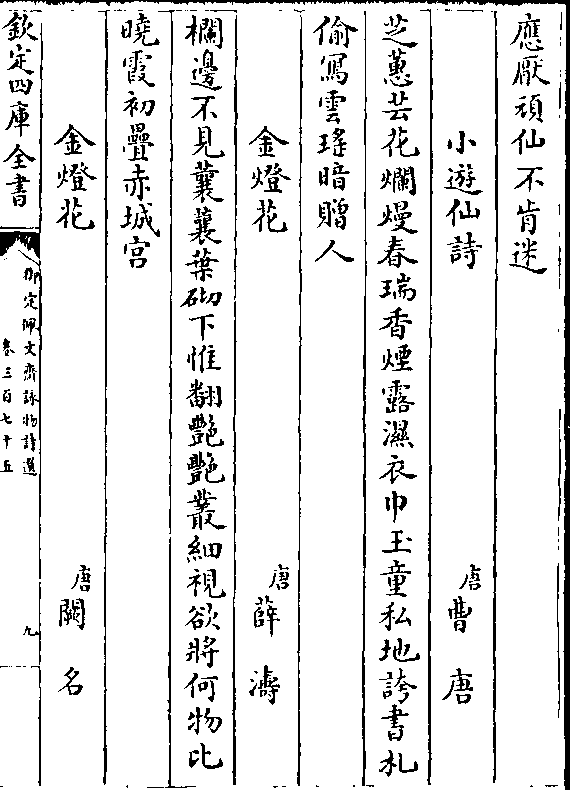 應厭頑仙不肯迷
小遊仙詩 唐曹唐
芝蕙芸花爛熳春瑞香煙露濕衣巾玉童私地誇書札
偷寫雲瑤暗贈人
金燈花 唐薛濤
欄邊不見蘘蘘葉砌下惟翻艷艷叢細視欲將何物比
曉霞初疊赤城宫
金燈花 唐闕名
欽定四庫全書
御定佩文齋詠物詩選
卷三百七十五
九